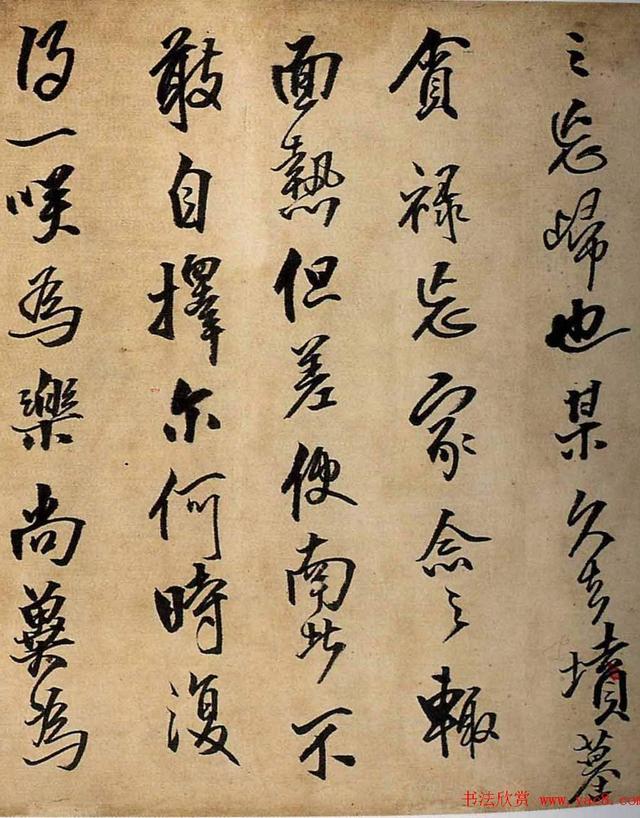 之忘歸也某久去墳墓
貪祿忘家念之輙
面熱但差使南北不
敢自擇尔何時復
得一咲為樂尚冀為
书法欣赏 www.yac8.com